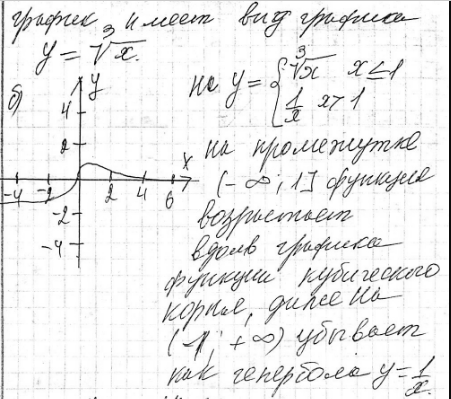 график имеет вид графика
y = ∛x.
б) y
4
2
x
-4 -2 2 4 6
-2
-4
но y = { ∛x x ≤ 1
1/x x > 1
на промежутке
(-∞; 1] функция
возрастает
вдоль графика
функции кубического
корня, далее на
(1; +∞) убывает
как гипербола y = 1/x.